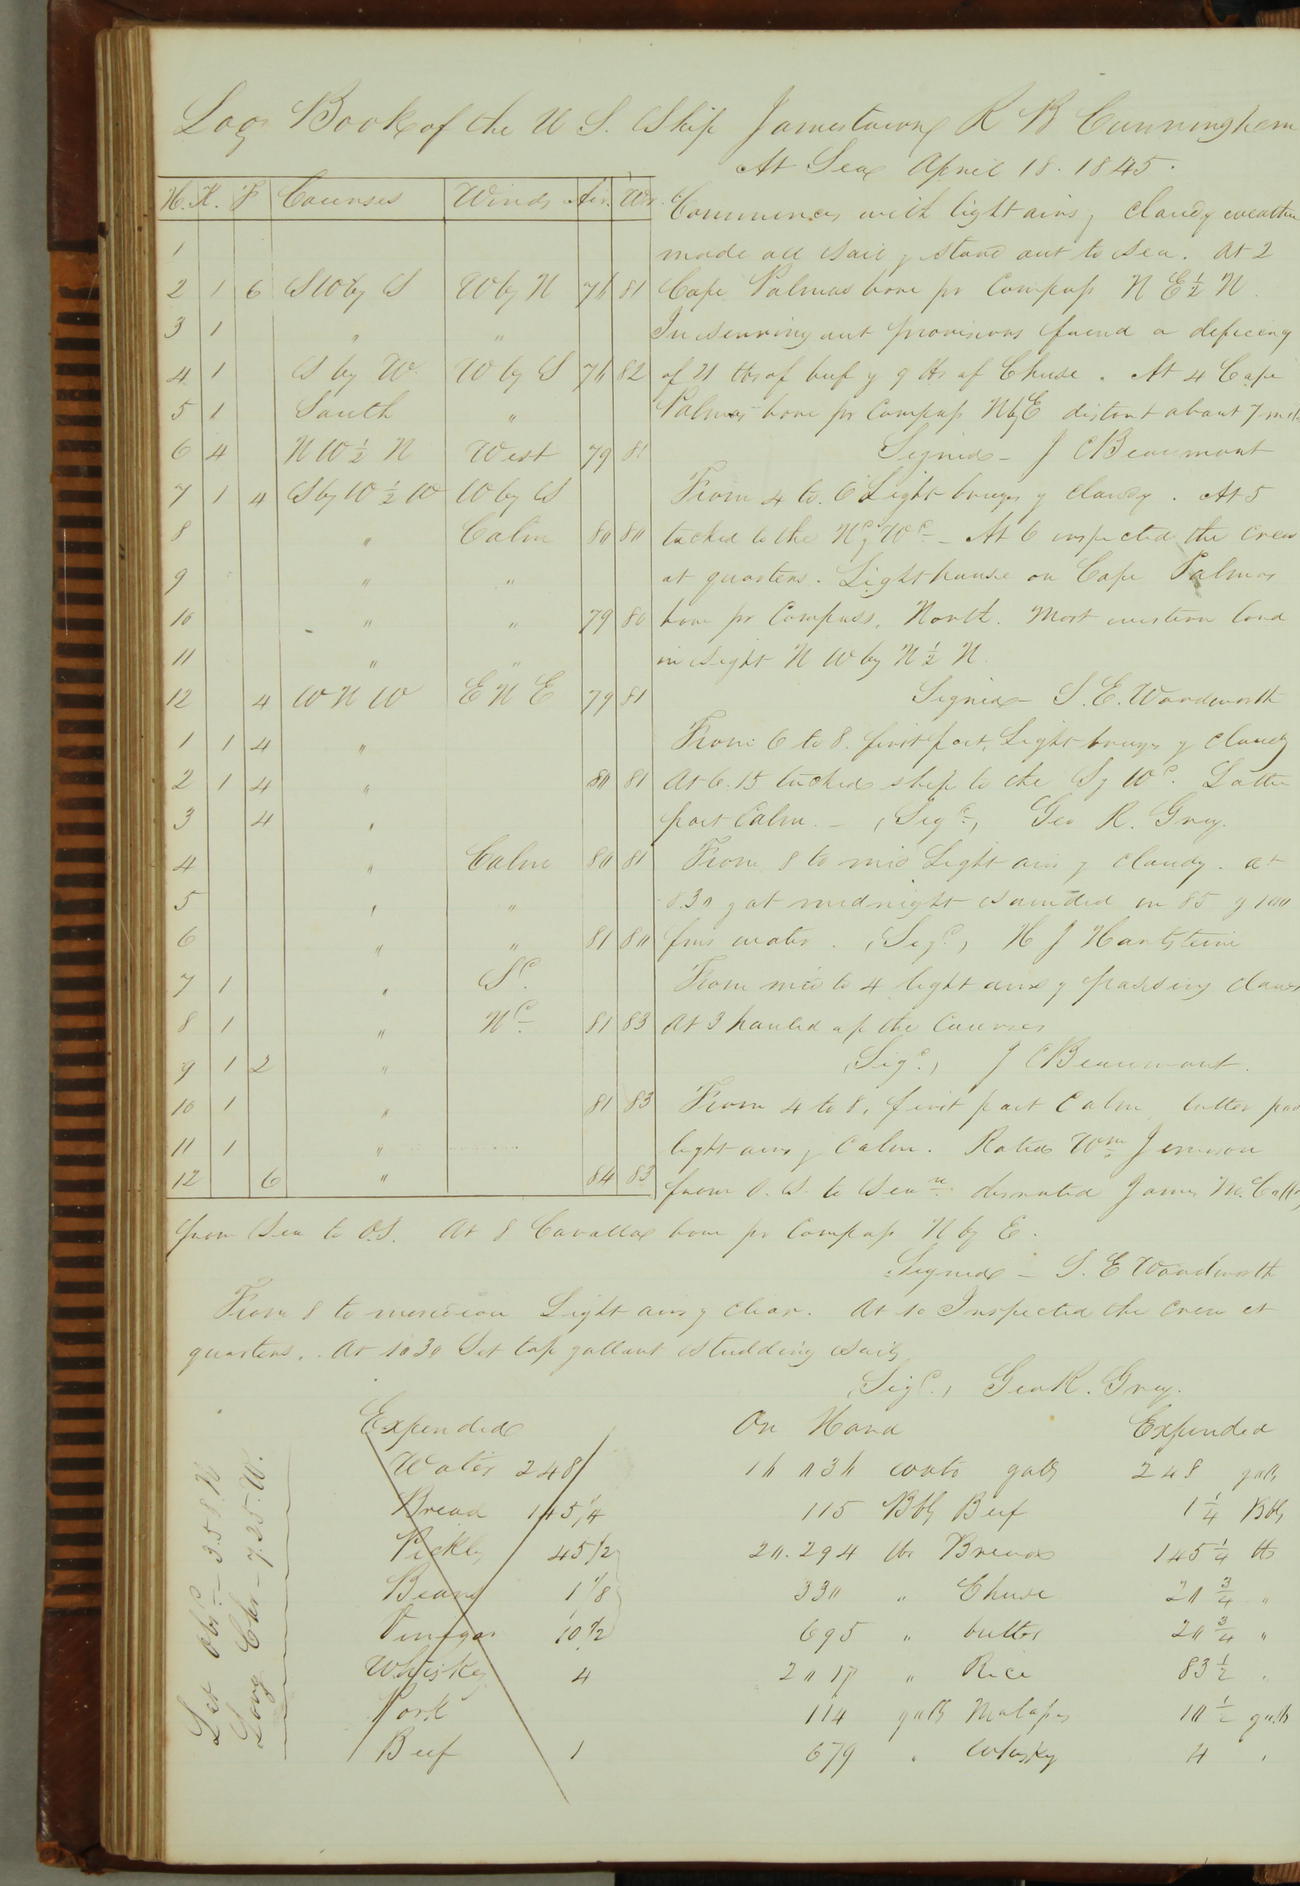 Log Book of the U S. Ship Jamestown R B Cunningham
At Sea April 18. 1845.
H. K. F Courses Winds Air. Wr.
1
2 1 6 SW by S W by N 76 81
3 1 " "
4 1 S by W. W by S 76 82
5 1 South "
6 4 N W ½ N West 79 81
7 1 4 S by W ½ W W by S
8 " Calm 80 80
9 " "
10 " " 79 80
11 " "
12 4 W N W E N E 79 81
1 1 4 "
2 1 4 " 80 81
3 4 "
4 " Calm 80 81
5 " "
6 " " 81 80
7 1 " Sd.
8 1 " Nd. 81 83
9 1 2 "
10 1 " 81 83
11 1 "
12 6 " 84 83
Commences with light airs y cloudy weather
made all sail y stood out to sea. At 2
Cape Palmas bore pr Compass N E ½ N.
In serving out provisions found a deficiency
of 21 lbs of beef y 9 lbs of Cheese. At 4 Cape
Palmas bore pr Compass N by E distant about 7 miles
Signed - J C Beaumont
From 4 to 6 Light breezes y cloudy. At 5
tacked to the Nd y Wd - At 6 inspected the crew
at quarters. Lighthouse on Cape Palmas
bore pr Compass, North. Most western land
in sight N W by N ½ N.
Signed - S. E. Woodworth
From 6 to 8. first part, Light breezes y cloudy
At 6.15 tacked ship to the S y Wd. Latter
part Calm. - (Sigd.) Geo R. Gray.
From 8 to mid Light airs y cloudy. at
8.30 y at midnight sounded in 85 y 100
fms water. (Sigd.) H J Hartstene
From mid to 4 light airs y passing clouds
At 3 hauled up the Courses
(Sigd.) J C Beaumont.
From 4 to 8, first part Calm, latter part
light airs y Calm. Rated Wm Jemison
from O. S. to Sean disrated James
from Sea to O.S. At 8 Cavallas bore pr Compass N by E.
Signed - S. E Woodworth
From 8 to meridian Light airs y clear. At 10 Inspected the crew at
quarters. At 10 30 Set top gallant studding sails
(Sigd.) Geo R. Gray.
Lat Obsd - 3.58. N
Long Chr - 7.25. W.
Expended
Water 248
Bread 145 ¼
Pickles 45 ½
Beans 1 ⅛
Vinegar 10 ½
Whiskey 4
Pork
Beef 1
On Hand Expended
16 036 water galls 248 galls
115 Bbls Beef 1 ¼ Bbls
20.294 lbs Bread 145 ¼ lbs
330 " Cheese 20 ¾ "
695 " butter 20 ¾ "
2017 " Rice 83 ½ "
114 galls Molasses 10 ½ galls
679 " Whisky 4 "